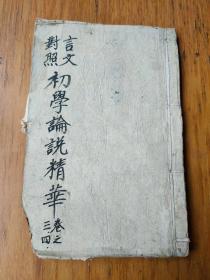 言文
對照
初學論説精華
卷之
三四